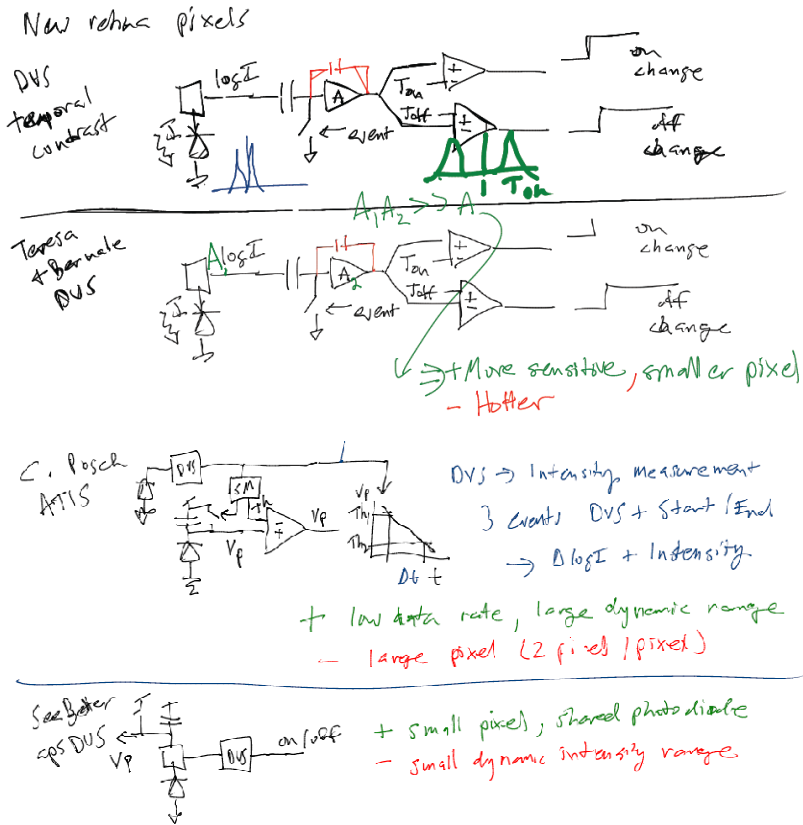 New retina pixels
DVS
temporal
contrast
I
logI
A
event
Ton
Toff
on
change
off
change
Ton
A1A2 >> A
Teresa
+ Bernabe
DVS
I
A1
logI
A2
event
Ton
Toff
on
change
off
change
⇒ + More sensitive, smaller pixel
- Hotter
C. Posch
ATIS
DVS
SM
th
Vp
Vp
Vp
Th1
Th2
Dt t
DVS → Intensity measurement
3 events DVS + Start/End
→ ΔlogI + Intensity
+ low data rate, large dynamic range
- large pixel (2 pixels/pixel)
SeeBetter
apsDVS
Vp
DVS
on/off
+ small pixel, shared photodiode
- small dynamic intensity range.